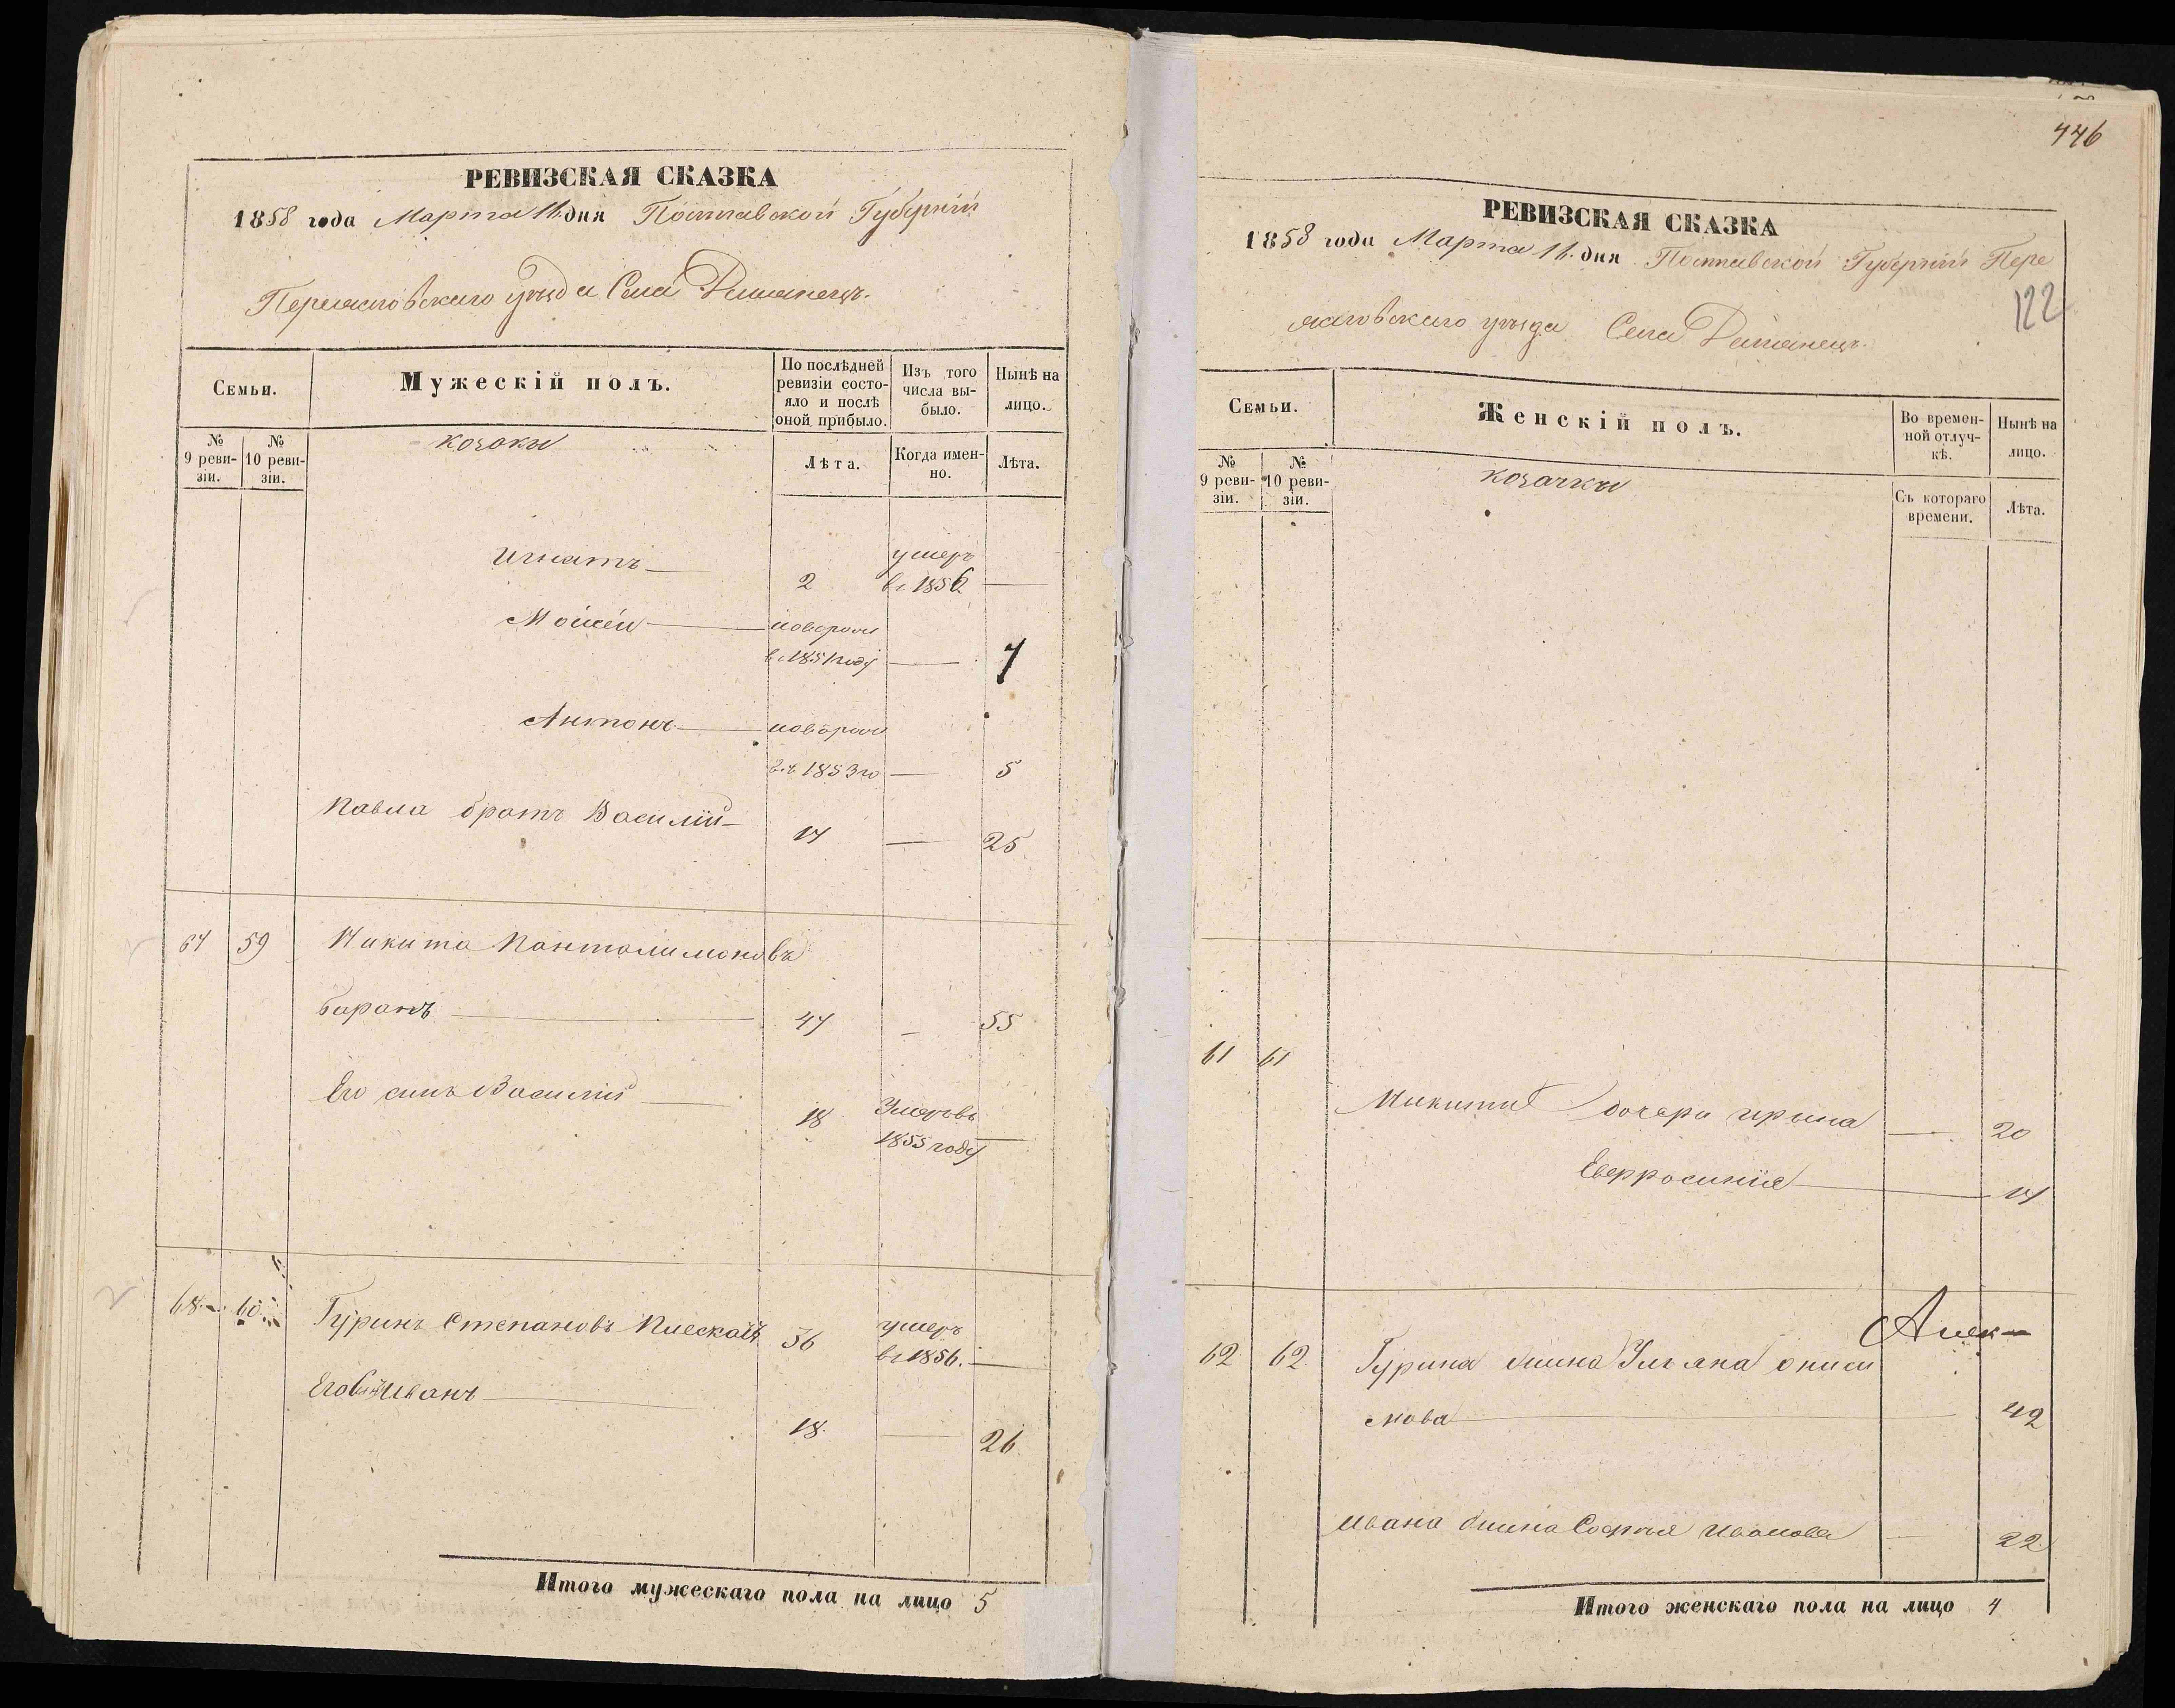 РЕВИЗСКАЯ СКАЗКА
1858 года Марта 11. дня Полтавской Губерніи
Переяславскаго уѣзда Села
Семьи.
Мужескій полъ.
По послѣдней ревизіи состо-
яло и послѣ
оной прибыло.
Изъ того
числа вы-
было.
Нынѣ на
лицо.
№
9 реви-
зіи.
№
10 реви-
зіи.
козаки
Лѣта.
Когда имен-
но.
Лѣта.
Игнатъ 2 умеръ
въ 1856
Мойсей новорож
въ 1851 году 7
Антонъ новорож
въ 1853 го 5
Павла братъ Василій 17 25
67 59 Никита Пантолимоновъ
Баранъ 47 55
Его сынъ Василій 18 Умеръ въ
1855 году
68 60 Гуринъ Степановъ 56 умеръ
въ 1856.
Его сынъ Иванъ 18 26
Итого мужескаго пола на лицо 5
446
РЕВИЗСКАЯ СКАЗКА
1858 года Марта 11. дня Полтавской Губерніи Пере
122
яславскаго уѣзда Села
Семьи.
Женскій полъ.
Во времен-
ной отлуч-
кѣ.
Нынѣ на
лицо.
№
9 реви-
зіи.
№
10 реви-
зіи.
козачки
Съ котораго
времени.
Лѣта.
61 61
Микиты дочери Ирина 20
Евфросинія 14
Алек-
62 62 Гурина жина Ульяна
42
Ивана жина Софья Иванова 22
Итого женскаго пола на лицо 4